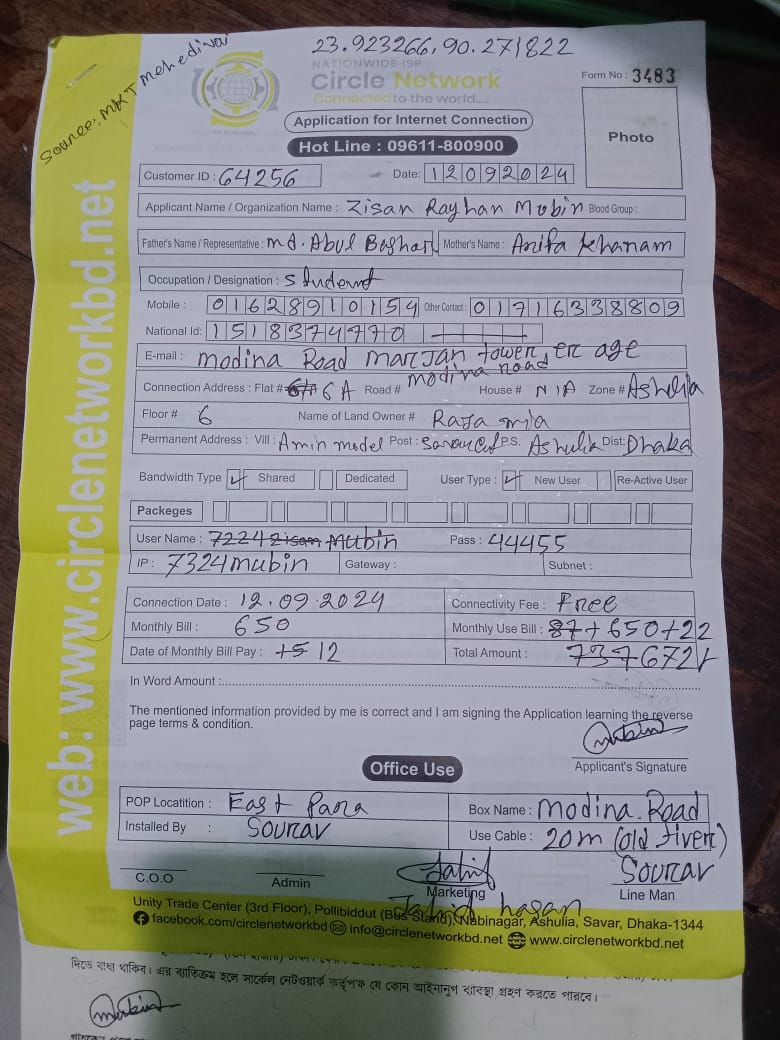 23.923266, 90.271822
Source: MKT Mehedivai
NATIONWIDE ISP
Circle Network
Connected to the world....
Form No : 3483
Application for Internet Connection
Photo
Hot Line : 09611-800900
Customer ID : 64256 Date: 12092024
Applicant Name / Organization Name : Zisan Rayhan Mubin Blood Group :
Father's Name / Representative : Md. Abul Bashar Mother's Name : Anifa Khanam
Occupation / Designation : Student
Mobile : 01628910154 Other Contact : 01716338809
National Id: 1518374770
E-mail : modina Road marjan tower, er
Connection Address : Flat # 6A Road # modina road House # N/A Zone # Ashulia
Floor # 6 Name of Land Owner # Raja mia
Permanent Address : Vill : Amin model Post : P.S. Ashulia Dist: Dhaka
Bandwidth Type ✓ Shared Dedicated User Type : ✓ New User Re-Active User
Packeges
User Name : 7224 zisan Mubin Pass : 44455
IP : 7324mubin Gateway : Subnet :
Connection Date : 12.09.2024 Connectivity Fee : Free
Monthly Bill : 650 Monthly Use Bill : 87+650+22
Date of Monthly Bill Pay : 12 Total Amount : 737 672/-
In Word Amount :
The mentioned information provided by me is correct and I am signing the Application learning the reverse
page terms & condition.
Mubin
Applicant's Signature
Office Use
POP Locatition : East Para Box Name : Modina Road
Installed By : Sourav Use Cable : 20m (old fiver)
C.O.O Admin Marketing Sourav Line Man
Jahid hasan
Unity Trade Center (3rd Floor), Pollibiddut (Bus Stand), Nabinagar, Ashulia, Savar, Dhaka-1344
facebook.com/circlenetworkbd info@circlenetworkbd.net www.circlenetworkbd.net
web: www.circlenetworkbd.net
দিতে বাধ্য থাকিব। এর ব্যতিক্রম হলে সার্কেল নেটওয়ার্ক কর্তৃপক্ষ যে কোন আইনানুগ ব্যবস্থা গ্রহণ করতে পারবে।
Mubin